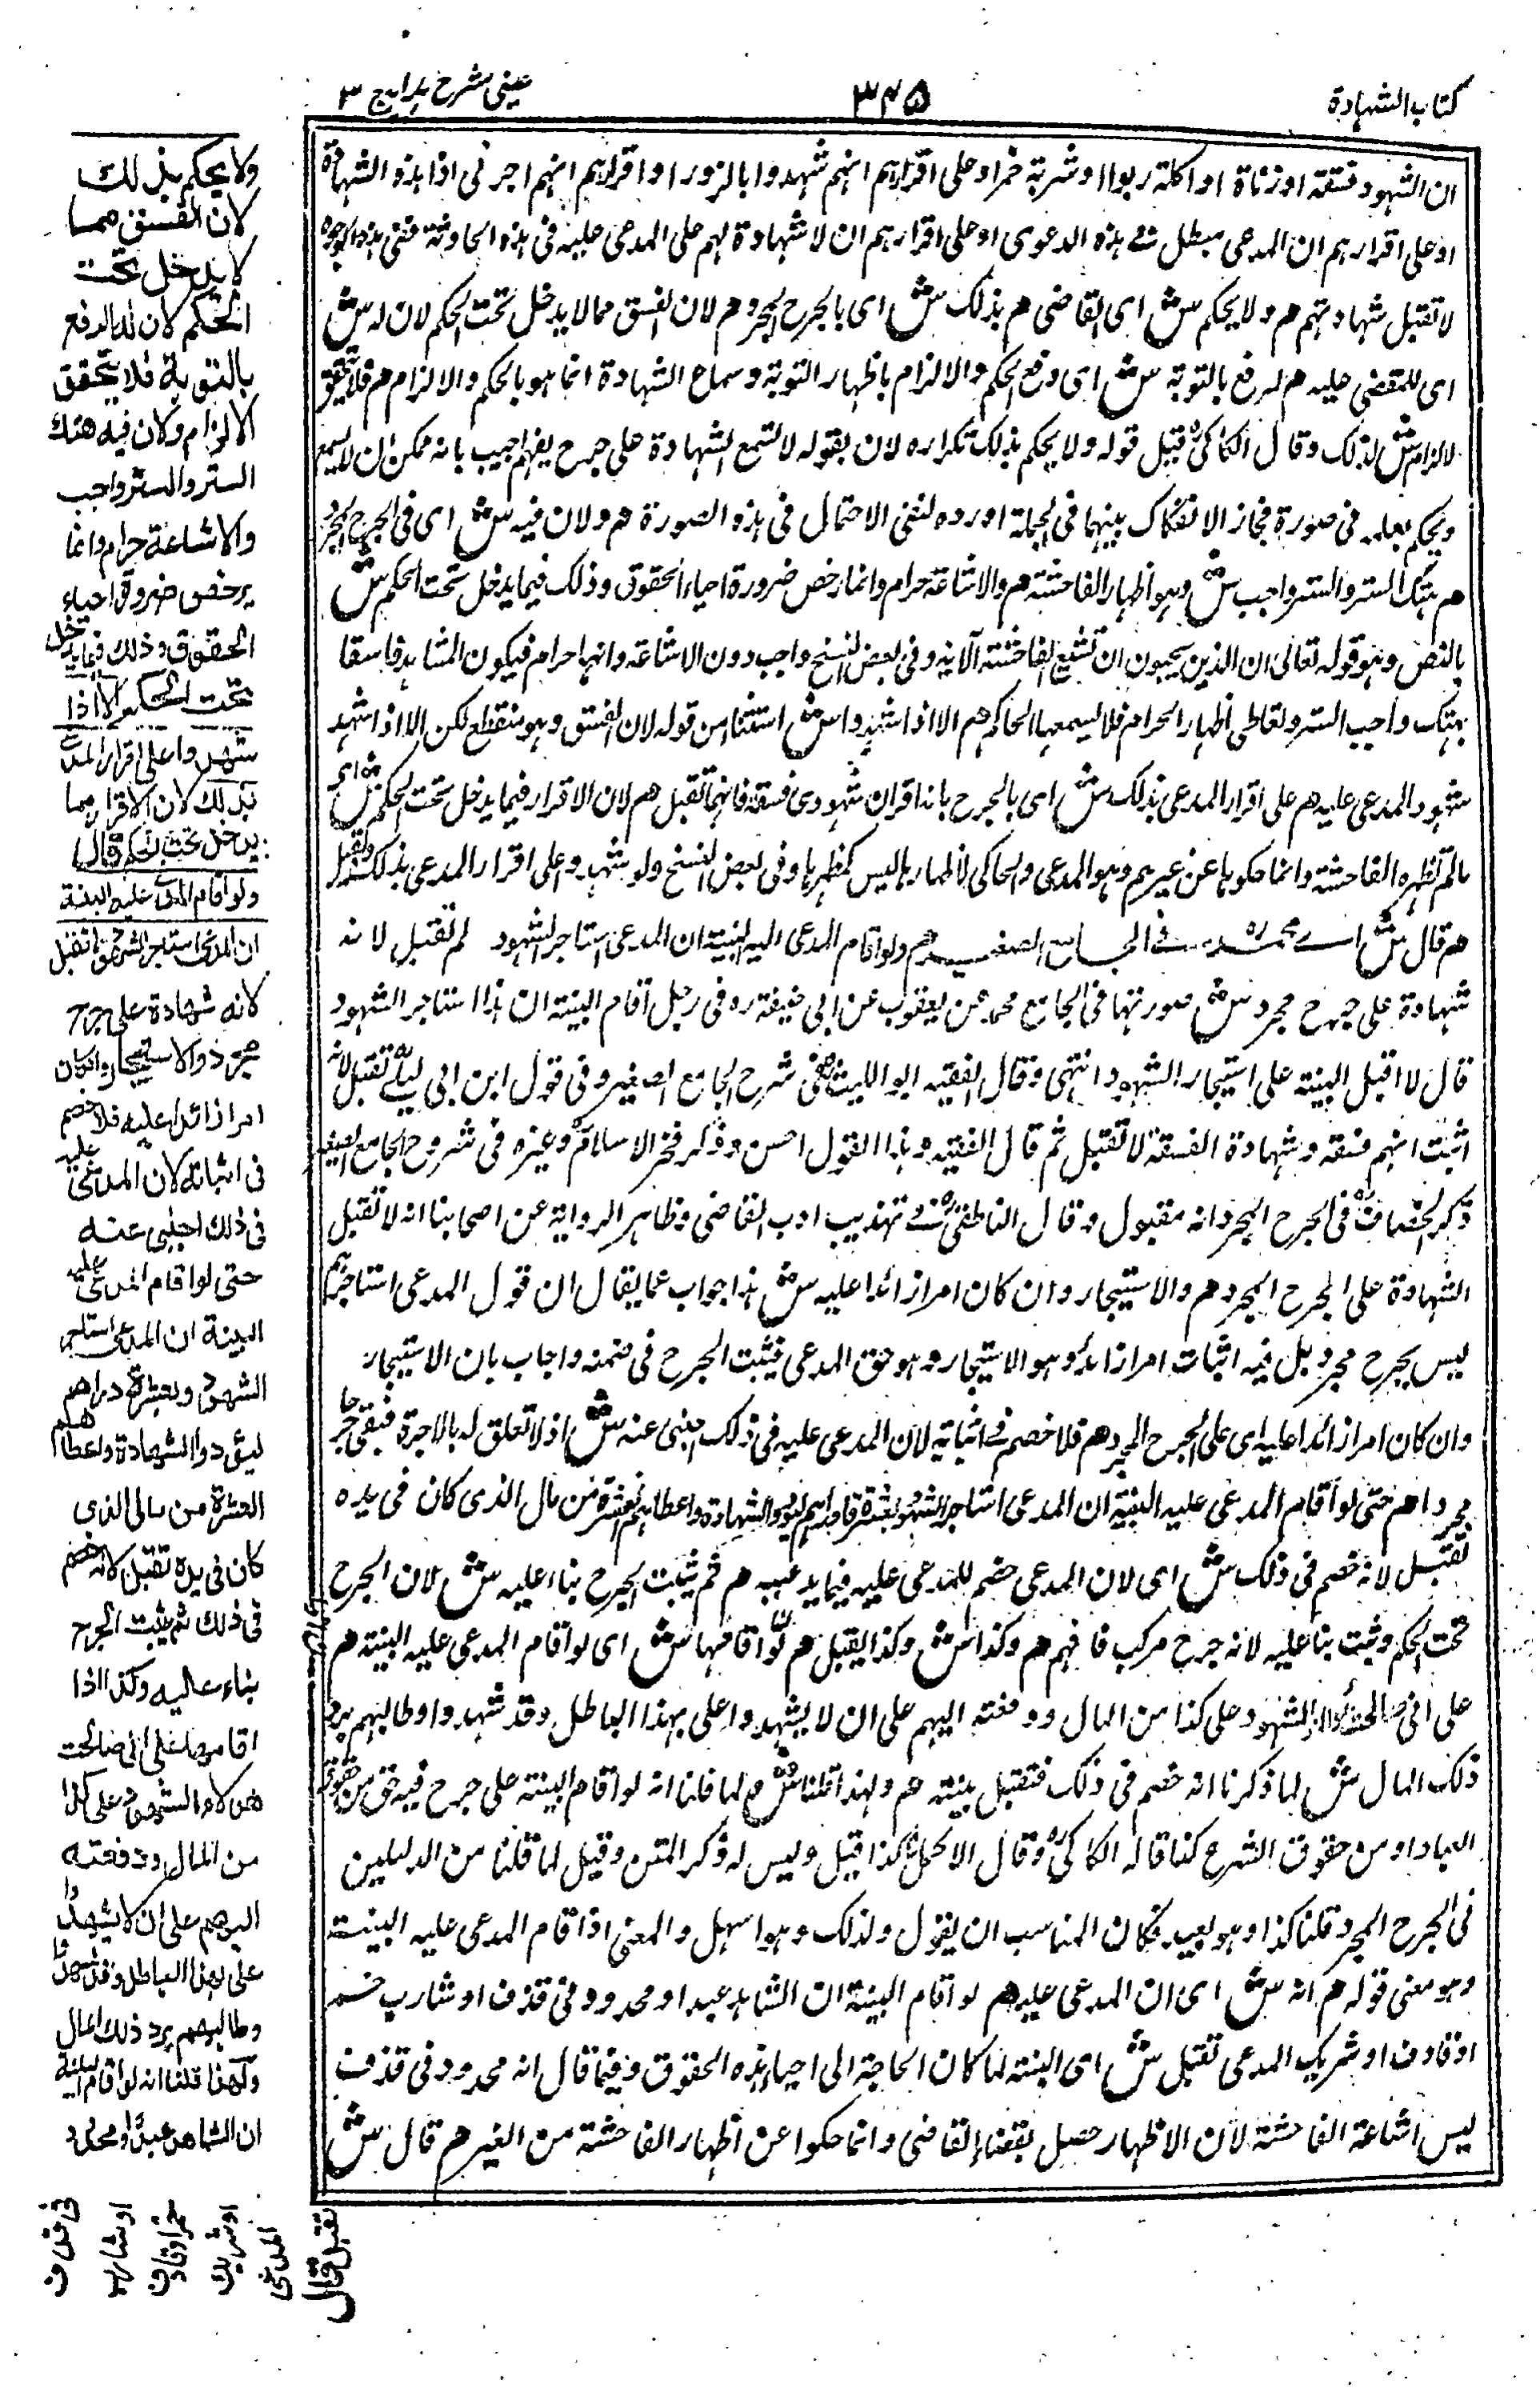 كتاب الشهادة
٣٤٥
عينى شرح هدايه ج ٣
ان الشهود فسقة او زناة او اكلة ربوا او شربة خمر او على اقرارهم انهم شهدوا بالزور او اقرارهم انهم اجر فى اذا هذه الشهادة
او على اقرارهم ان المدعى مبطل فى هذه الدعوى او على اقرارهم ان لا شهادة لهم على المدعى عليه فى هذه الحادثة ففى هذه الوجوه
لا تقبل شهادتهم هم ولا يحكم ش اى القاضى هم بذلك ش اى بالجرح المجرد هم لان الفسق مما لا يدخل تحت الحكم لان له ش
اى للمقضى عليه هم لرفع بالتوبة ش اى دفع الحكم والالزام باظهار التوبة وسماع الشهادة انما هو بالحكم والالزام هم فلا يتحقق
لالزام ش لذلك وقال الكاكى قيل قوله ولا يحكم بذلك تكراره لان بقوله لا تسمع الشهادة على جرح يفهم اجيب بانه ممكن ان لا يسمع
ويحكم بعلمه فى صورة فجاز الانفكاك بينهما فى الجملة اورده لنفى الاحتمال فى هذه الصورة هم ولان فيه ش اى فى الجرح المجرد
هم هتك الستر والستر واجب ش وهو اظهار الفاحشة هم والاشاعة حرام وانما رخص ضرورة احياء الحقوق وذلك فيما يدخل تحت الحكم ش
بالنص وهو قوله تعالى ان الذين يحبون ان تشيع الفاحشة الآية وفى بعض النسخ واجب دون الاشاعة وانها حرام فيكون المشاهد فاسقا
بهتك واجب الستر وتعاطى اظهار الحرام فلا يسمعها الحاكم هم الا اذا شهدوا ش استثنا من قوله لان الفسق وهو منقطع لكن الا اذا شهد
شهود المدعى عليه هم على اقرار المدعى بذلك ش اى بالجرح بانه اقر ان شهودى فسقة فانها تقبل هم لان الاقرار فيما يدخل تحت الحكم ش اى
مالم تظهره الفاحشة وانما حكوها عن غيرهم وهو المدعى والحاكى لاظهارها ليس كمظهرها وفى بعض النسخ ولو شهدوا على اقرار المدعى بذلك تقبل
هم قال ش اى محمد ره فى الجامع الصغير هم ولو اقام المدعى اليه البينة ان المدعى استاجر الشهود لم تقبل لانه
شهادة على جرح مجرد ش صورتها فى الجامع محمد عن يعقوب عن ابى حنيفة ره فى رجل اقام البينة ان هذا استاجر الشهود
قال لا اقبل البينة على استيجار الشهود انتهى وقال الفقيه ابو الليث فى شرح الجامع الصغير وفى قول ابن ابى ليلى تقبل لانه
اثبت انهم فسقة وشهادة الفسقة لا تقبل ثم قال الفقيه وهذا القول احسن وذكر فخر الاسلام وغيره فى شروح الجامع الصغير
ذكر الخصاف فى الجرح المجرد انه مقبول وقال الناطفى فى تهذيب ادب القاضى وظاهر الرواية عن اصحابنا انه لا تقبل
الشهادة على الجرح المجرد هم والاستيجار وان كان امرا زائدا عليه ش هذا جواب عما يقال ان قول المدعى استاجرهم
ليس بجرح مجرد بل فيه اثبات امر زائد وهو الاستيجار وهو حق المدعى فيثبت الجرح فى ضمنه واجاب بان الاستيجار
وان كان امرا زائدا عليه اى على الجرح المجرد هم فلا خصم فى اثباته لان المدعى عليه فى ذلك اجنبى عنه ش اذ لا تعلق له بالاجرة فبقى جرحا
مجردا هم حتى لو اقام المدعى عليه البينة ان المدعى استاجر الشهود بعشرة دراهم ليؤدوا الشهادة واعطاهم العشرة من مال الذى كان فى يده
تقبل لانه خصم فى ذلك ش اى لان المدعى خصم للمدعى عليه فيما يدعيه هم ثم يثبت الجرح بناء عليه ش لان الجرح
تحت الحكم وثبت بنا عليه لانه جرح مركب فافهم هم وكذا ش وكذا يقبل هم لو اقامها ش اى لو اقام المدعى عليه البينة هم
على انى صالحت هؤلاء الشهود على كذا من المال ودفعته اليهم على ان لا يشهدوا على بهذا الباطل وقد شهدوا وطالبهم برد
ذلك المال ش لما ذكرنا انه خصم فى ذلك فتقبل بينته هم ولهذا قلنا ش م لما قلنا انه لو اقام البينة على جرح فيه حق من حقوق
العباد او من حقوق الشرع كذا قاله الكاكى وقال الاكمل كذا قيل وليس له ذكر المتن وقيل لما قلنا من الدليلين
فى الجرح المجرد قلنا كذا وهو بعيد فكان المناسب ان يقول ولذلك وهو اسهل والمعنى اذا اقام المدعى عليه البينة
وهو معنى قوله هم انه ش اى ان المدعى عليه هم لو اقام البينة ان الشاهد عبد او محدود فى قذف او شارب خمر
او قاذف او شريك المدعى تقبل ش اى البينة لما كان الحاجة الى احياء هذه الحقوق وفيما قال انه محدود فى قذف
ليس اشاعة الفاحشة لان الاظهار حصل بقضاء القاضى وانما حكوا عن اظهار الفاحشة من الغير هم قال ش
ولا يحكم بذلك
لان الفسق مما
لا يدخل تحت
الحكم لان له الدفع
بالتوبة فلا يتحقق
الالزام ولان فيه هتك
الستر والستر واجب
والاشاعة حرام وانما
يرخص ضرورة احياء
الحقوق وذلك فيما يدخل
تحت الحكم الا اذا
شهدوا على اقرار المدعى
بذلك لان الاقرار مما
يدخل تحت الحكم قال
ولو اقام المدعى عليه البينة
ان المدعى استاجر الشهود لم تقبل
لانه شهادة على جرح
مجرد والاستيجار وان كان
امرا زائدا عليه فلا خصم
فى اثباته لان المدعى عليه
فى ذلك اجنبى عنه
حتى لو اقام المدعى عليه
البينة ان المدعى استاجر
الشهود بعشرة دراهم
ليؤدوا الشهادة واعطاهم
العشرة من مالى الذى
كان فى يده تقبل لانه خصم
فى ذلك ثم يثبت الجرح
بناء عليه وكذا اذا
اقامها على انى صالحت
هؤلاء الشهود على كذا
من المال ودفعته
اليهم على ان لا يشهدوا
على بهذا الباطل وقد شهدوا
وطالبهم برد ذلك المال
ولهذا قلنا انه لو اقام البينة
ان الشاهد عبد او محدود
فى قذف
او شارب
خمر او قاذف
او شريك
المدعى
تقبل قال